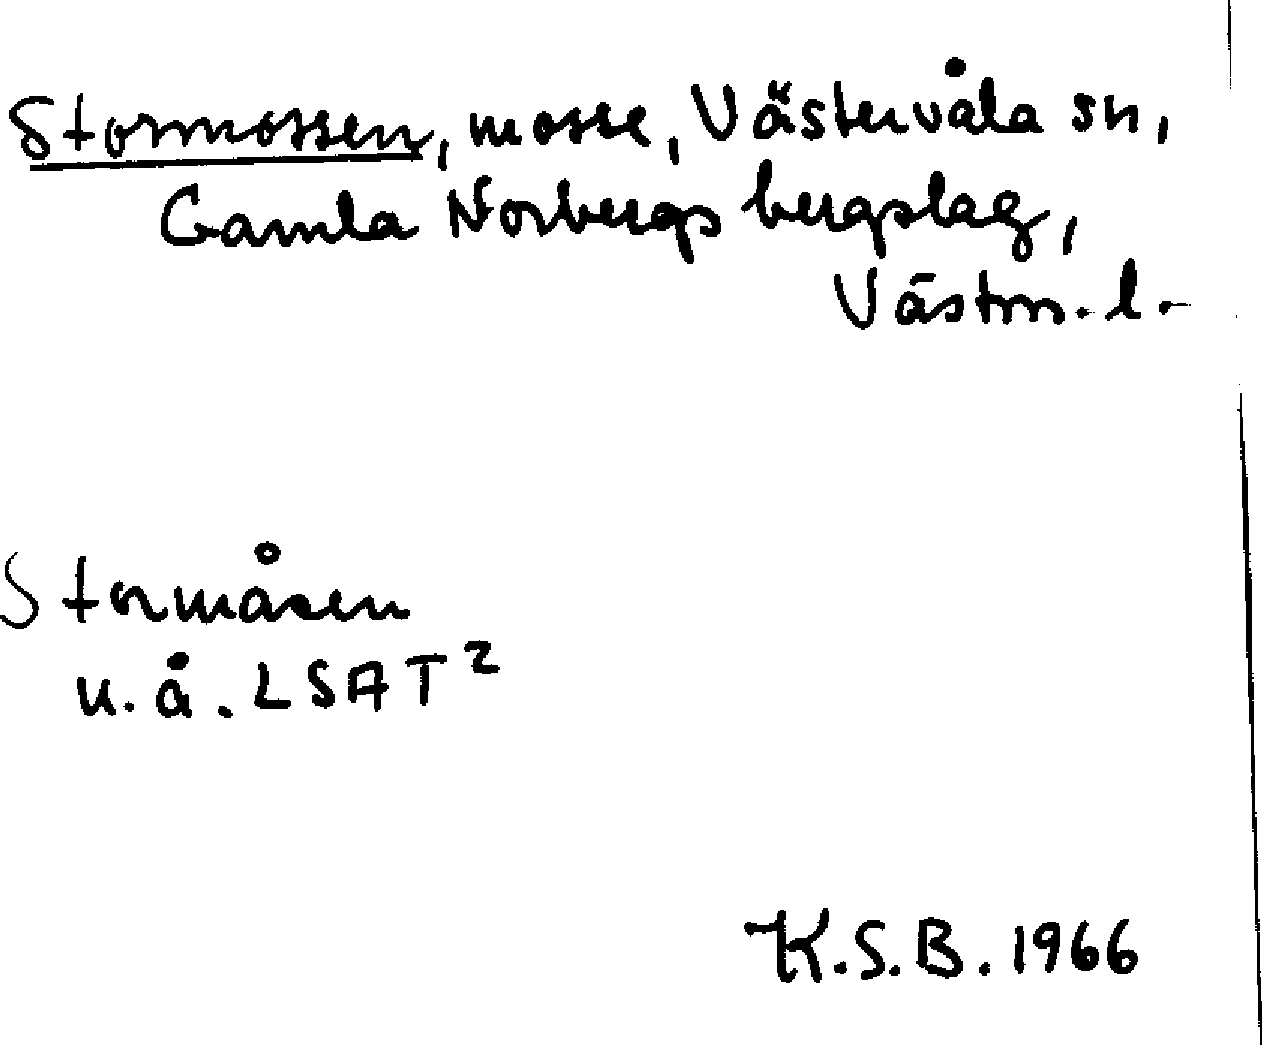 Stormossen, mosse, Västervåla sn,
Gamla Norbergs bergslag,
Västm. l.
Stormåsen
u. å. LSAT²
K.S.B. 1966